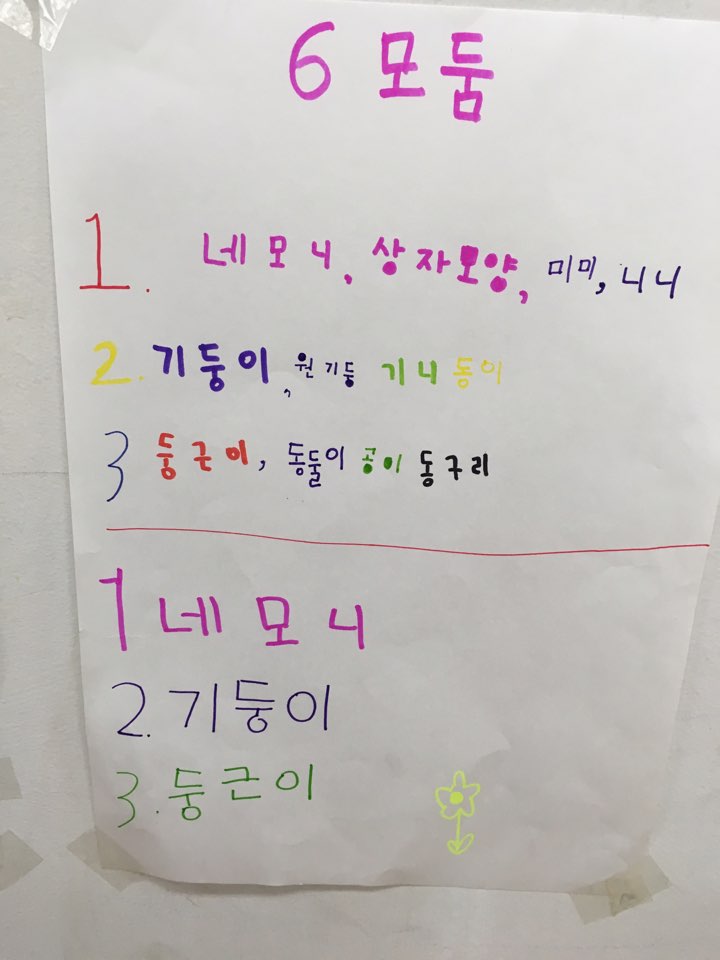 6 모둠
1. 네모니, 상자모양, 미미, 니니
2. 기둥이, 원기둥 기니 동이
3 둥근이, 동둘이 공이 동구리
1 네모니
2. 기둥이
3. 둥근이